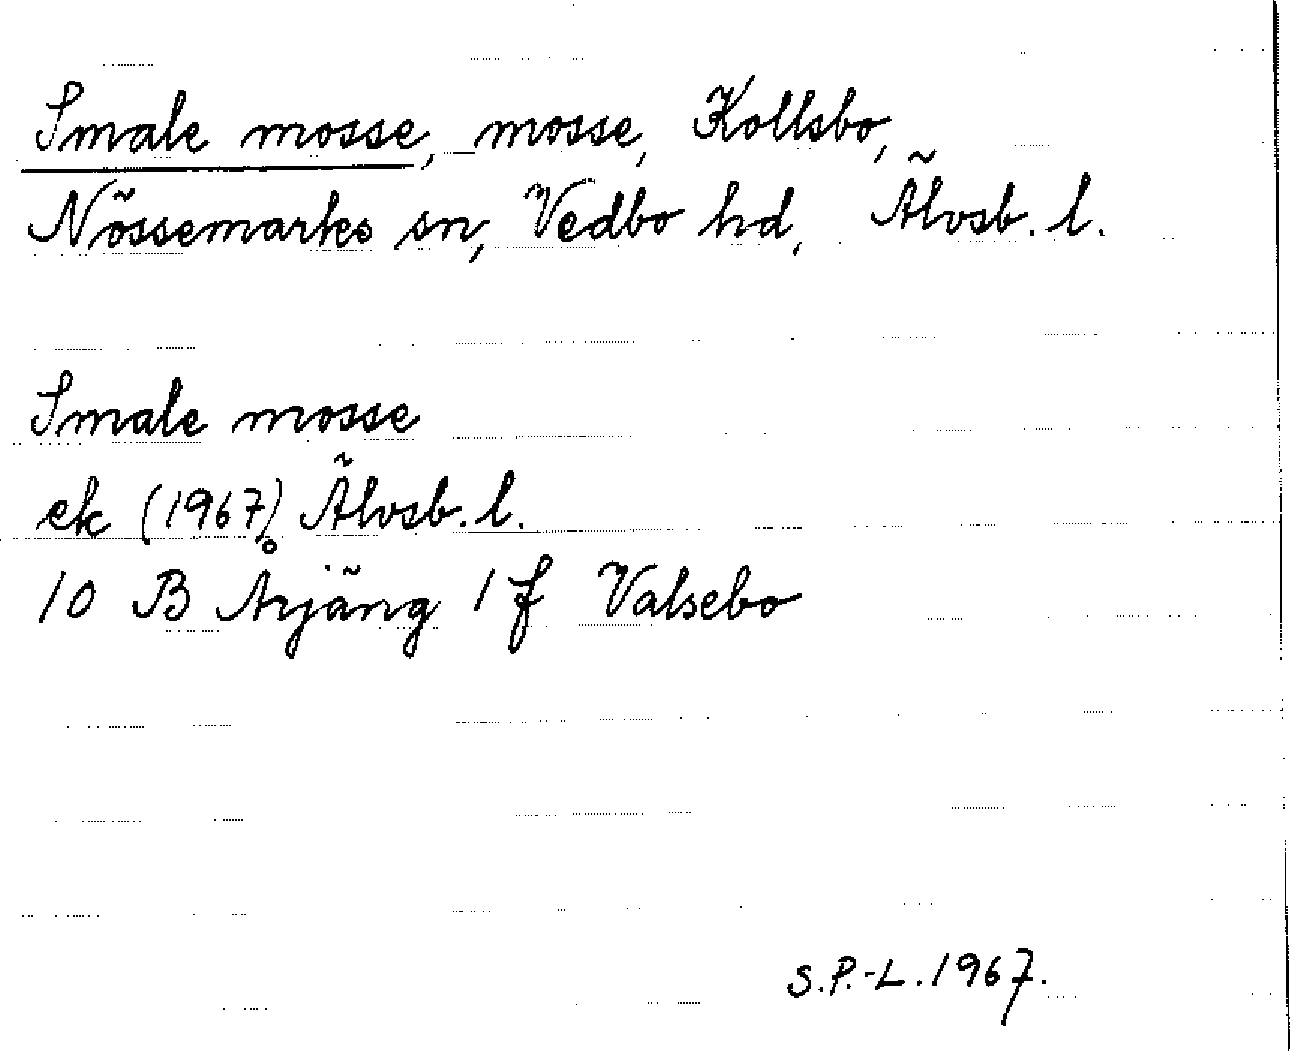 Smale mosse, mosse, Kollsbo,
Nössemarks sn, Vedbo hd, Älvsb. l.
Smale mosse
ek (1967) Älvsb. l.
10 B Årjäng 1 f Valsebo
S.P.-L. 1967.